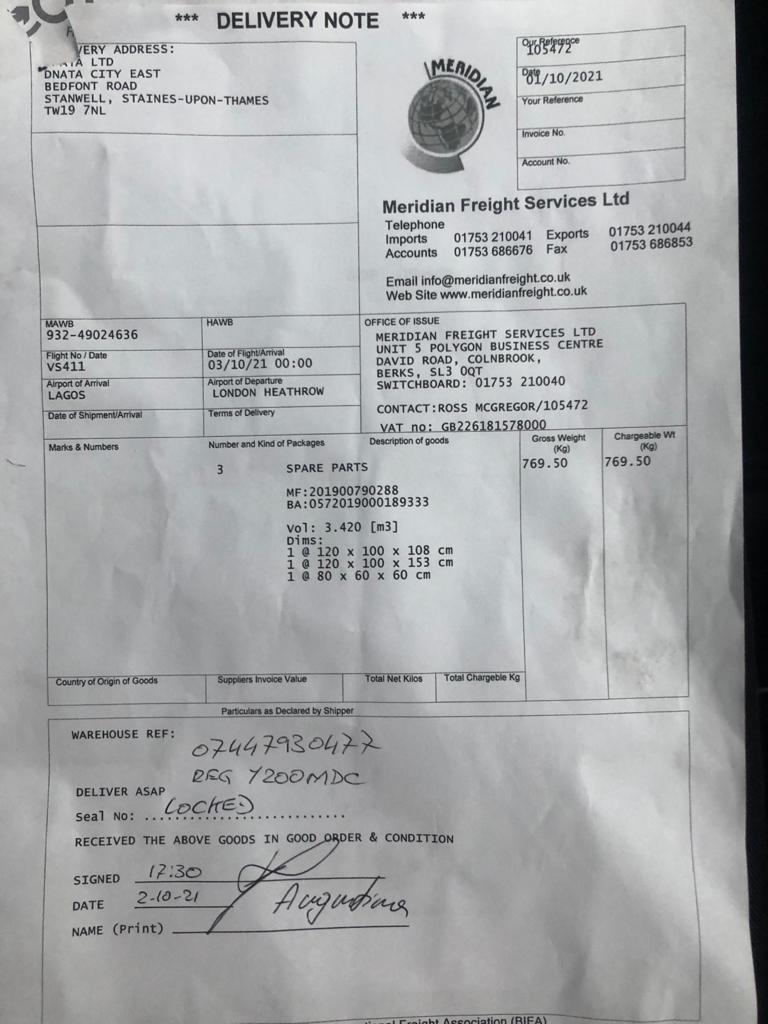 *** DELIVERY NOTE ***
VERY ADDRESS:
LTD
DNATA CITY EAST
BEDFONT ROAD
STANWELL, STAINES-UPON-THAMES
TW19 7NL
MERIDIAN
Our Reference
105472
Date
01/10/2021
Your Reference
Invoice No.
Account No.
Meridian Freight Services Ltd
Telephone
Imports 01753 210041 Exports 01753 210044
Accounts 01753 686676 Fax 01753 686853
Email info@meridianfreight.co.uk
Web Site www.meridianfreight.co.uk
MAWB
932-49024636
HAWB
Flight No / Date
VS411
Date of Flight/Arrival
03/10/21 00:00
Airport of Arrival
LAGOS
Airport of Departure
LONDON HEATHROW
Date of Shipment/Arrival
Terms of Delivery
OFFICE OF ISSUE
MERIDIAN FREIGHT SERVICES LTD
UNIT 5 POLYGON BUSINESS CENTRE
DAVID ROAD, COLNBROOK,
BERKS, SL3 0QT
SWITCHBOARD: 01753 210040
CONTACT:ROSS MCGREGOR/105472
VAT no: GB226181578000
Marks & Numbers
Number and Kind of Packages
Description of goods
Gross Weight
(Kg)
Chargeable Wt
(Kg)
3 SPARE PARTS 769.50 769.50
MF:201900790288
BA:0572019000189333
Vol: 3.420 [m3]
Dims:
1 @ 120 x 100 x 108 cm
1 @ 120 x 100 x 153 cm
1 @ 80 x 60 x 60 cm
Country of Origin of Goods
Suppliers Invoice Value
Total Net Kilos
Total Chargeable Kg
Particulars as Declared by Shipper
WAREHOUSE REF:
07447930477
REG Y200MDC
DELIVER ASAP
Seal No: LOCKED
RECEIVED THE ABOVE GOODS IN GOOD ORDER & CONDITION
SIGNED 17:30
DATE 2-10-21
NAME (Print)
Freight Association (BIFA)